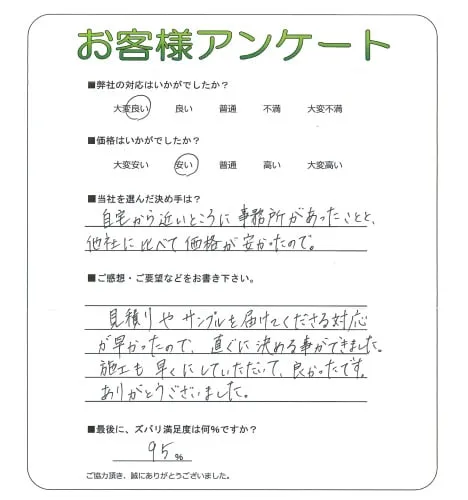 お客様アンケート
■弊社の対応はいかがでしたか？
大変良い 良い 普通 不満 大変不満
■価格はいかがでしたか？
大変安い 安い 普通 高い 大変高い
■当社を選んだ決め手は？
自宅から近いところに事務所があったことと、
他社に比べて価格が安かったので。
■ご感想・ご要望などをお書き下さい。
見積りやサンプルを届けてくださる対応
が早かったので、直ぐに決める事ができました。
施工も早くにしていただいて、良かったです。
ありがとうございました。
■最後に、ズバリ満足度は何％ですか？
95％
ご協力頂き、誠にありがとうございました。